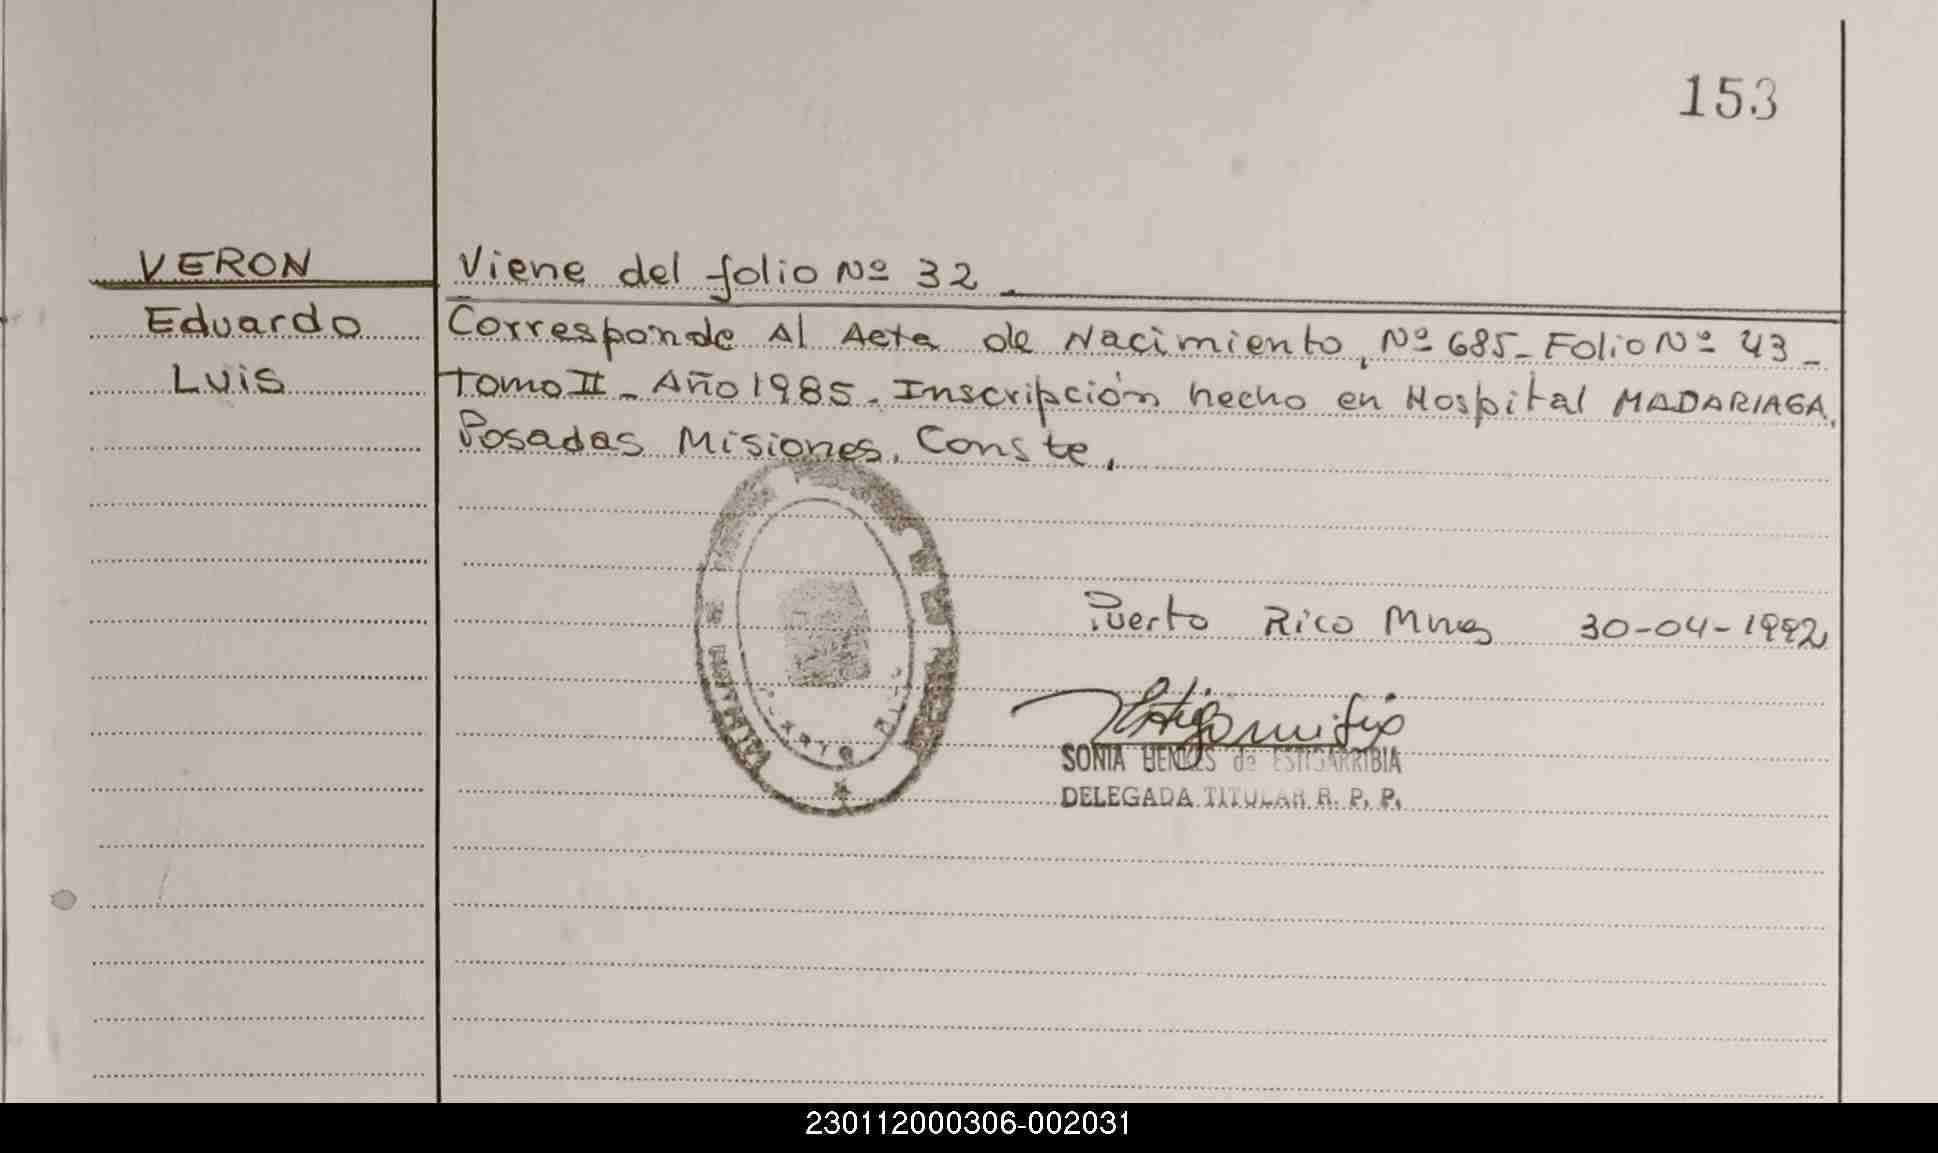 153
VERON
Viene del folio Nº 32
Eduardo
Corresponde Al Acta de Nacimiento, Nº 685- Folio Nº 43 -
Luis
Tomo II - Año 1985. Inscripción hecho en Hospital MADARIAGA,
Posadas Misiones. Conste.
Puerto Rico Mnes 30-04-1992
SONIA HENKES de ESTIGARRIBIA
DELEGADA TITULAR R. P. P.
230112000306-002031